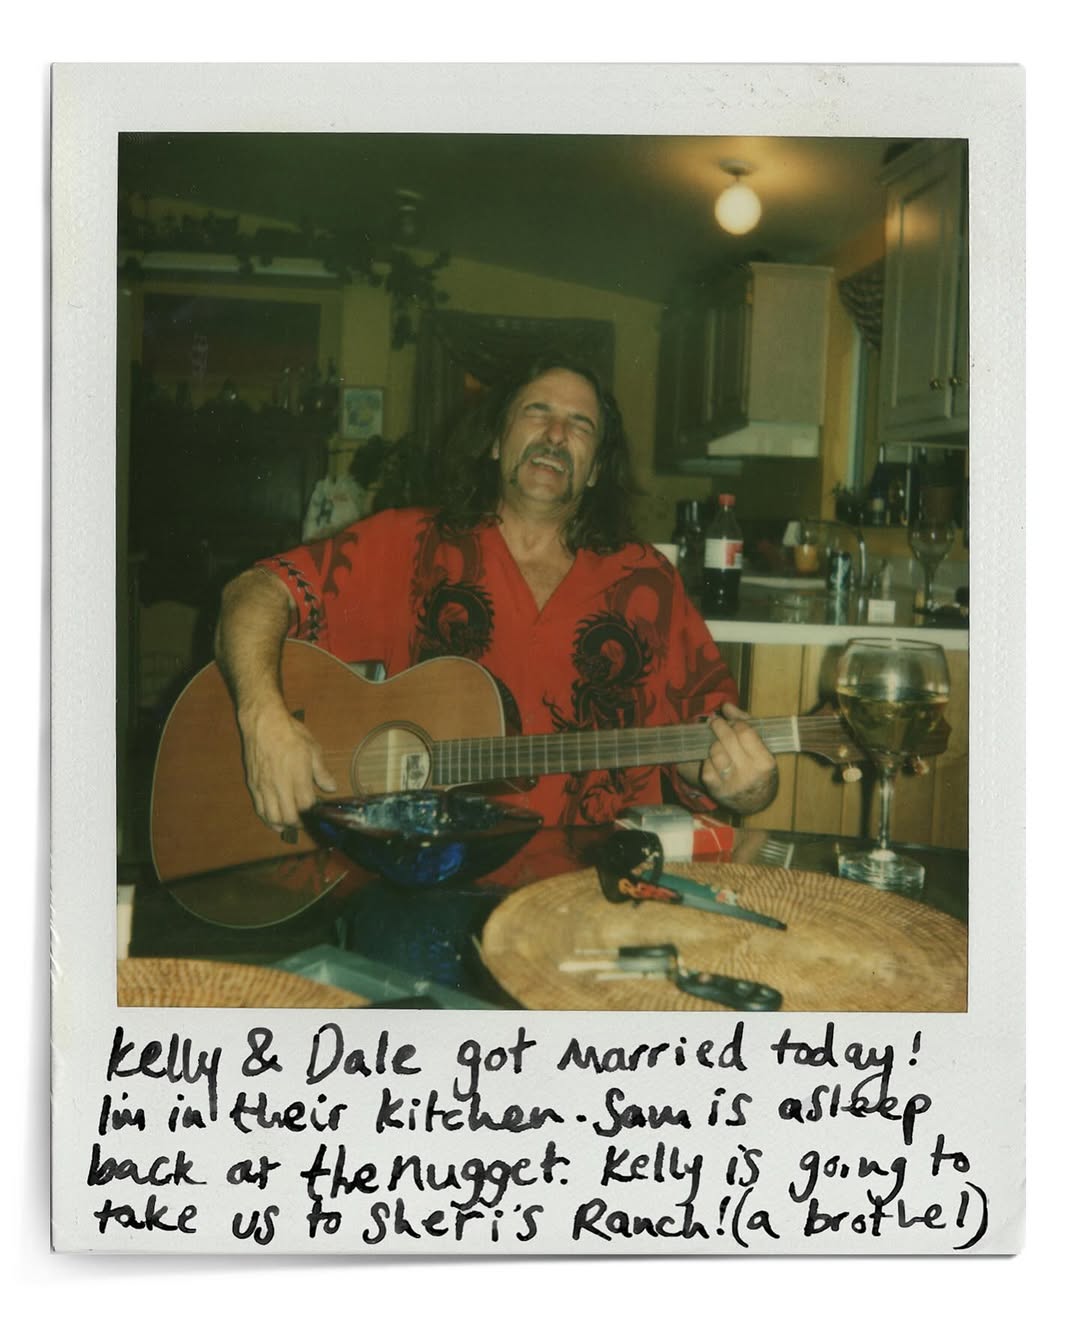 Kelly & Dale got married today!
I'm in their kitchen. Sam is asleep
back at the Nugget. Kelly is going to
take us to Sheri's Ranch! (a brothel)